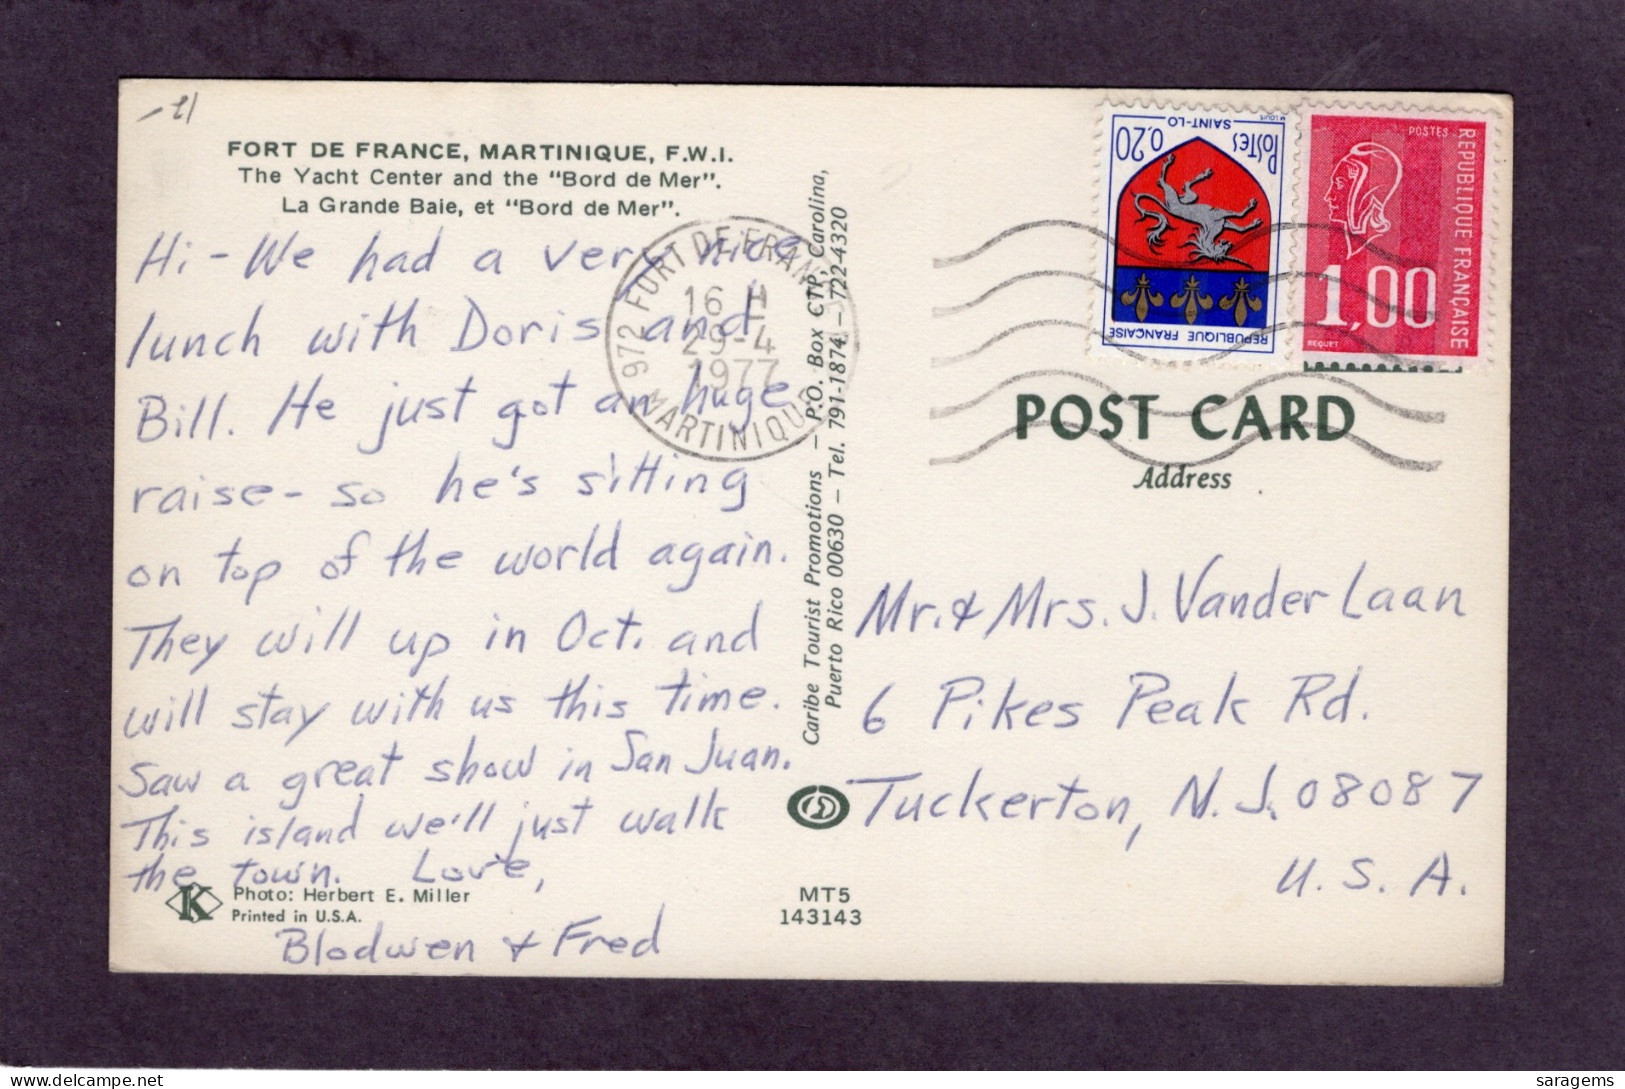 FORT DE FRANCE, MARTINIQUE, F.W.I.
The Yacht Center and the "Bord de Mer".
La Grande Baie, et "Bord de Mer".
Hi - We had a very nice
lunch with Doris and
Bill. He just got an huge
raise - so he's sitting
on top of the world again.
They will up in Oct. and
will stay with us this time.
Saw a great show in San Juan.
This island we'll just walk
the town. Love,
Blodwen & Fred
K
Photo: Herbert E. Miller
Printed in U.S.A.
972 FORT DE FRANCE
16 H
29-4
1977
MARTINIQUE
Caribe Tourist Promotions — P.O. Box CTP, Carolina,
Puerto Rico 00630 — Tel. 791-1874 — 722-4320
MT5
143143
POSTES
0,20
SAINT-LO
M LOUIS
REPUBLIQUE FRANÇAISE
POSTES
REPUBLIQUE FRANÇAISE
1,00
BEQUET
POST CARD
Address
Mr. & Mrs. J. Vander Laan
6 Pikes Peak Rd.
Tuckerton, N.J. 08087
U.S.A.
saragems
delcampe.net